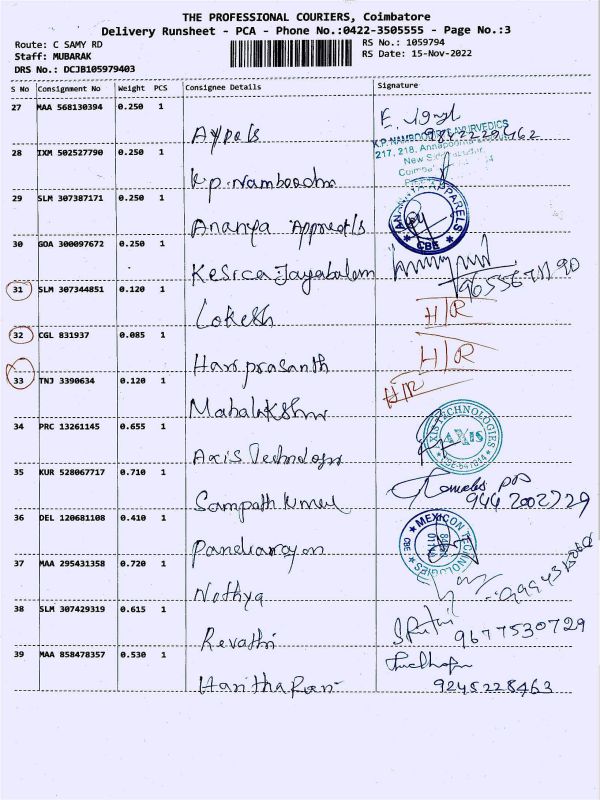 THE PROFESSIONAL COURIERS, Coimbatore
Delivery Runsheet - PCA - Phone No.:0422-3505555 - Page No.:3
Route: C SAMY RD
RS No.: 1059794
Staff: MUBARAK
RS Date: 15-Nov-2022
DRS No.: DCJB105979403
S No Consignment No Weight PCS Consignee Details Signature
27 MAA 568130394 0.250 1
9842229462
K.P. NAMBOODIRI'S AYURVEDICS
217, 218, Annapoorna
28 IXM 502527790 0.250 1
K.p. Namboodiri
29 SLM 307387171 0.250 1
ANANYA APPARELS
CBE
Ananya Apparels
30 GOA 300097672 0.250 1
Jayabalam
31 SLM 307344851 0.120 1
H/R
Lokesh
32 CGL 831937 0.085 1
H/R
Hariprasanth
33 TNJ 3390634 0.120 1
H/R
Mahalakshmi
34 PRC 13261145 0.655 1
AXIS TECHNOLOGIES
AXIS
Axis Technology
35 KUR 528067717 0.710 1
9442002729
Sampath Kumar
36 DEL 120681108 0.410 1
MEXICON TECHNOLOGIES
CBE
37 MAA 295431358 0.720 1
Nithya
38 SLM 307429319 0.615 1
9677530729
Revathi
39 MAA 858478357 0.530 1
9245228463